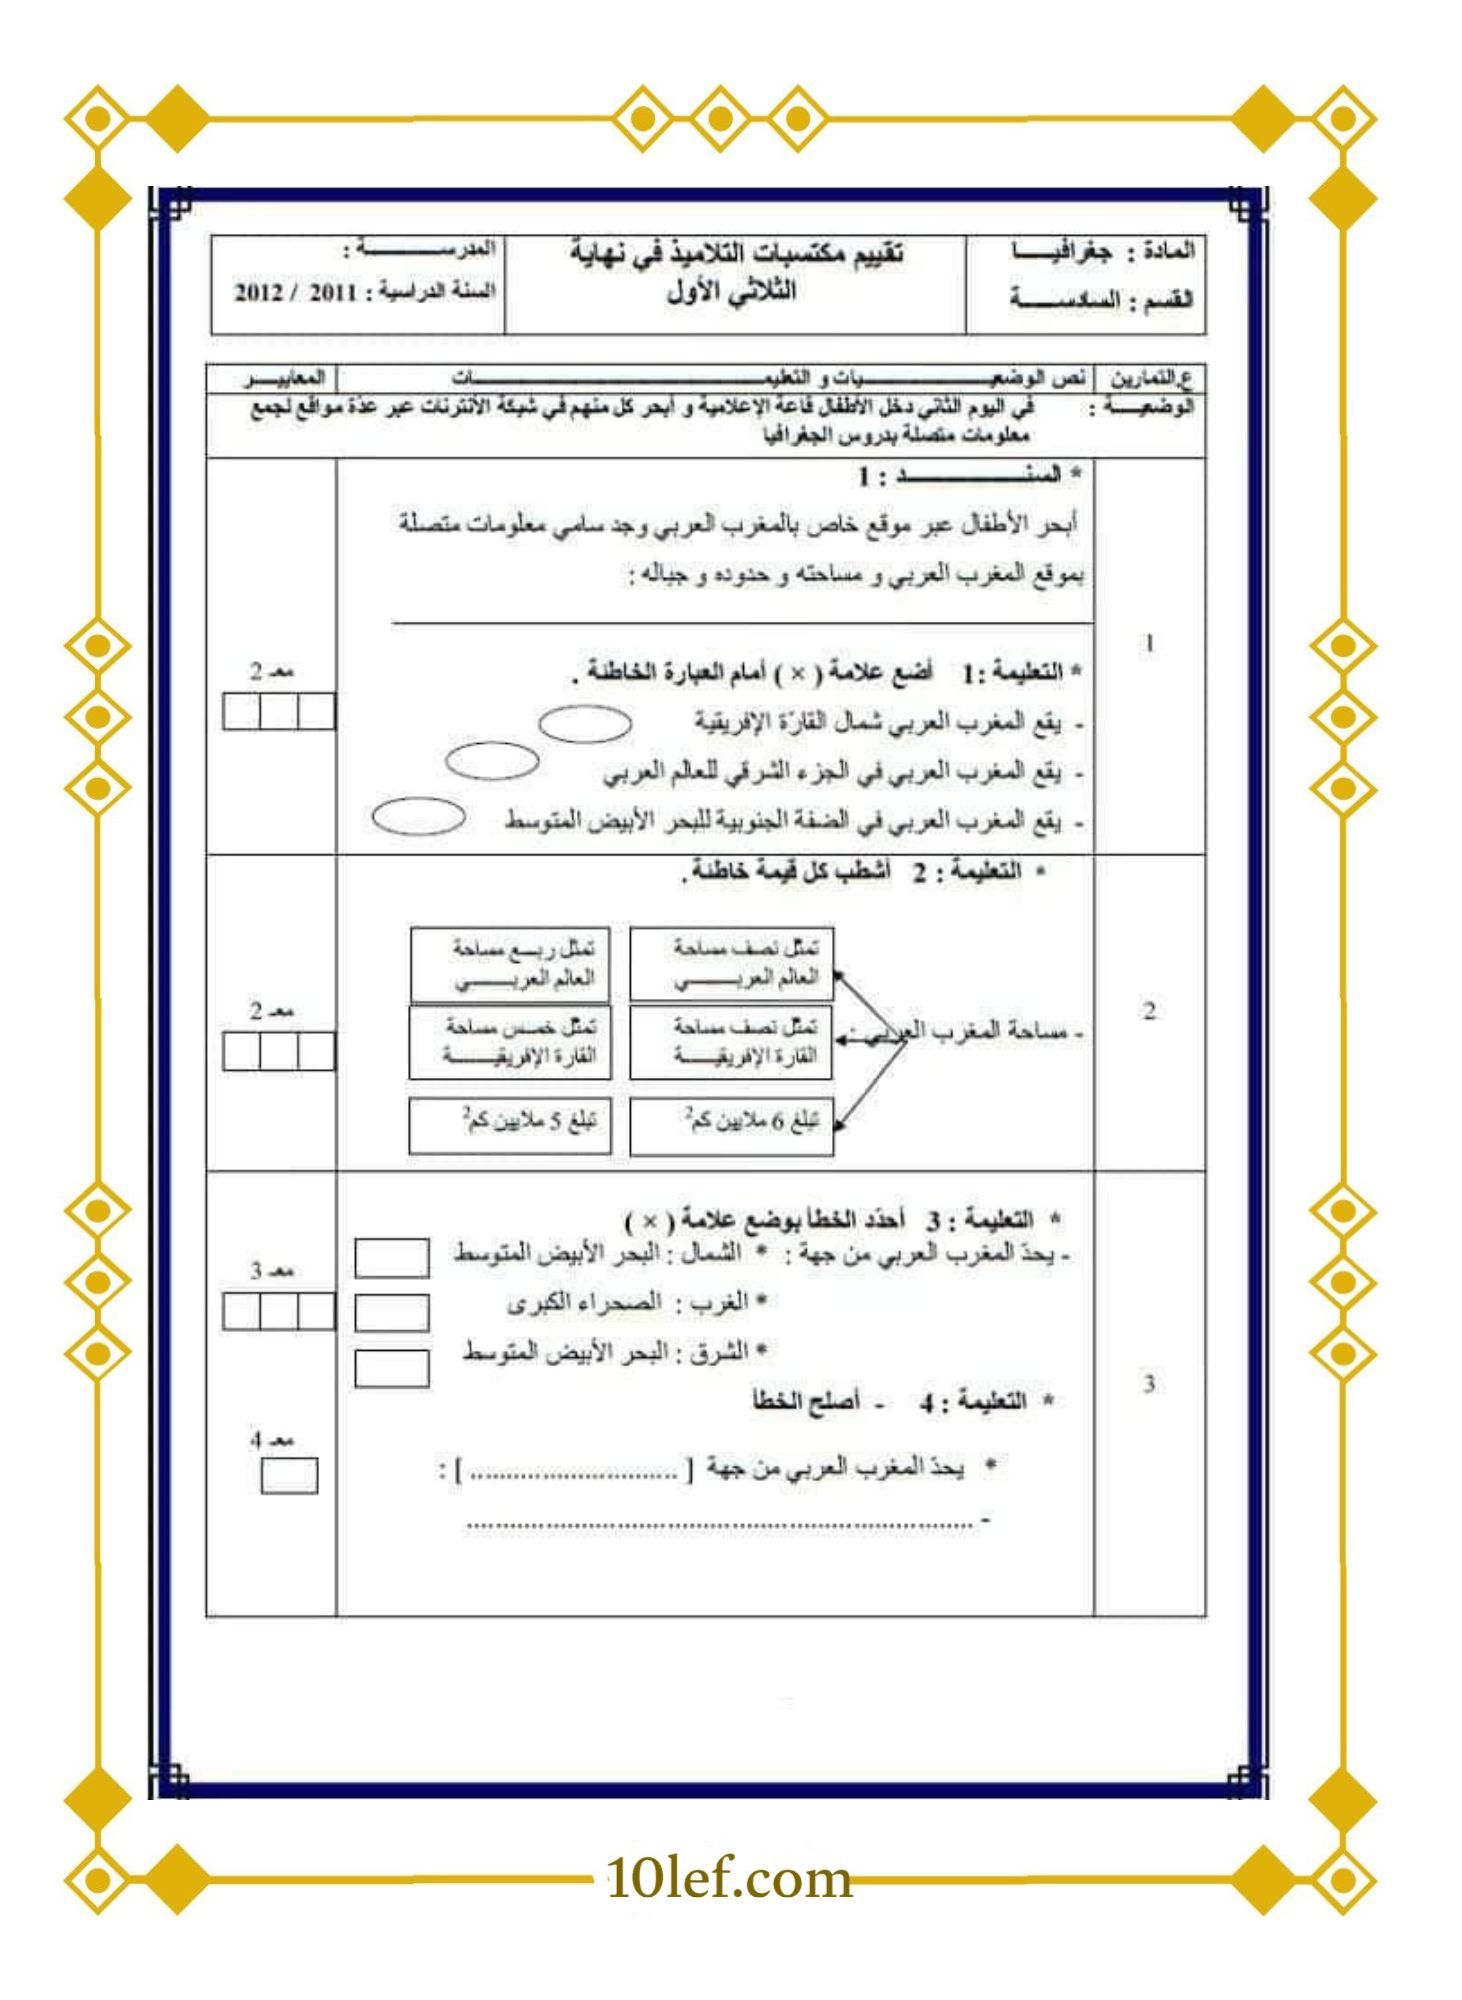 المادة : جغرافيـــا
القسم : السادســـة
تقييم مكتسبات التلاميذ في نهاية
الثلاثي الأول
المدرســـــة :
السنة الدراسية : 2011 / 2012
ع.التمارين
نص الوضعيـــــات و التعليمـــــــات
المعاييـــر
الوضعيـــة :
في اليوم الثاني دخل الأطفال قاعة الإعلامية و أبحر كل منهم في شبكة الأنترنات عبر عدّة مواقع لجمع
معلومات متصلة بدروس الجغرافيا
1
* السنـــــــد : 1
أبحر الأطفال عبر موقع خاص بالمغرب العربي وجد سامي معلومات متصلة
بموقع المغرب العربي و مساحته و حدوده و جباله :
* التعليمة :1 أضع علامة ( × ) أمام العبارة الخاطئة .
- يقع المغرب العربي شمال القارّة الإفريقية
- يقع المغرب العربي في الجزء الشرقي للعالم العربي
- يقع المغرب العربي في الضفة الجنوبية للبحر الأبيض المتوسط
معـ 2
2
* التعليمة : 2 أشطب كل قيمة خاطئة .
- مساحة المغرب العربي :
تمثّل نصف مساحة
العالم العربـــــي
تمثّل ربـــع مساحة
العالم العربـــــي
تمثّل نصف مساحة
القارة الإفريقيـــــة
تمثّل خمـــس مساحة
القارة الإفريقيـــــة
تبلغ 6 ملايين كم²
تبلغ 5 ملايين كم²
معـ 2
3
* التعليمة : 3 أحدّد الخطأ بوضع علامة ( × )
- يحدّ المغرب العربي من جهة : * الشمال : البحر الأبيض المتوسط
* الغرب : الصحراء الكبرى
* الشرق : البحر الأبيض المتوسط
معـ 3
* التعليمة : 4 - أصلح الخطأ
* يحدّ المغرب العربي من جهة [ ............................ ] :
- ......................................................................
معـ 4
10lef.com